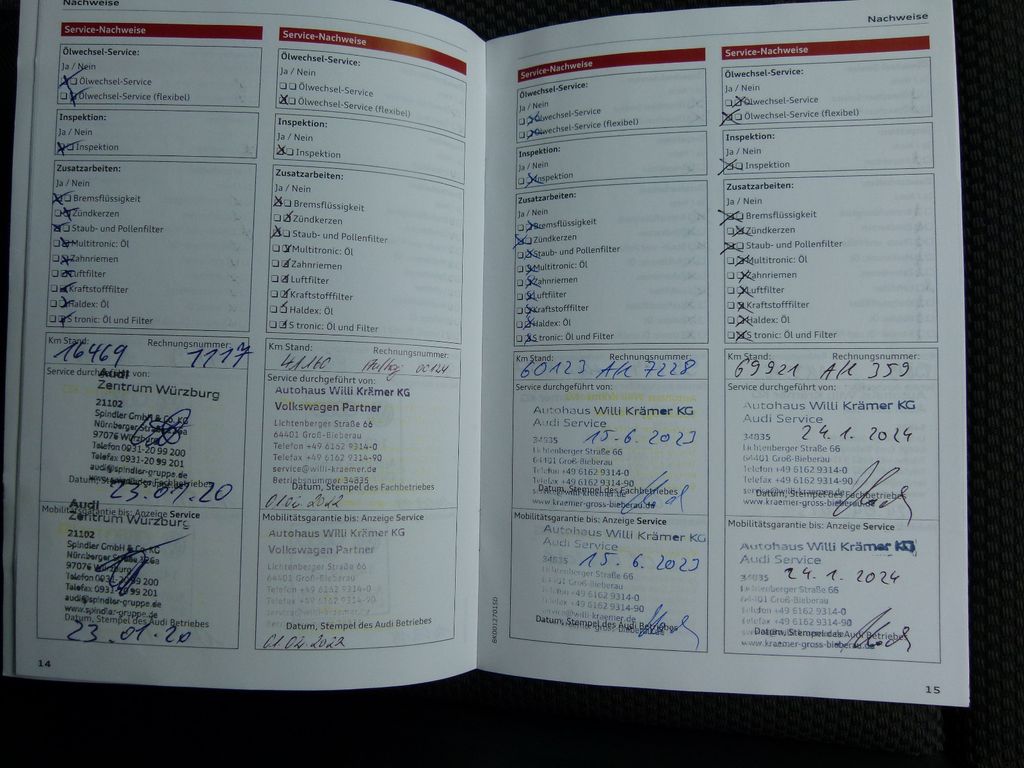 Nachweise
Service-Nachweise
Ölwechsel-Service:
Ja / Nein
Ölwechsel-Service
Ölwechsel-Service (flexibel)
Inspektion:
Ja / Nein
Inspektion
Zusatzarbeiten:
Ja / Nein
Bremsflüssigkeit
Zündkerzen
Staub- und Pollenfilter
Multitronic: Öl
Zahnriemen
Luftfilter
Kraftstofffilter
Haldex: Öl
S tronic: Öl und Filter
Km Stand: Rechnungsnummer:
16469 1117
Service durchgeführt von:
Audi
Zentrum Würzburg
21102
Spindler GmbH & Co. KG
Nürnberger Straße
97076 Würzburg
Telefon 0931-20 99 200
Telefax 0931-20 99 201
audi@spindler-gruppe.de
Datum, Stempel des Fachbetriebes
23.01.20
Mobilitätsgarantie bis: Anzeige Service
Audi
Zentrum Würzburg
21102
Spindler GmbH & Co. KG
Nürnberger Straße
97076 Würzburg
Telefon 0931-20 99 200
Telefax 0931-20 99 201
audi@spindler-gruppe.de
www.spindler-gruppe.de
Datum, Stempel des Audi Betriebes
23.01.20
14
Service-Nachweise
Ölwechsel-Service:
Ja / Nein
Ölwechsel-Service
Ölwechsel-Service (flexibel)
Inspektion:
Ja / Nein
Inspektion
Zusatzarbeiten:
Ja / Nein
Bremsflüssigkeit
Zündkerzen
Staub- und Pollenfilter
Multitronic: Öl
Zahnriemen
Luftfilter
Kraftstofffilter
Haldex: Öl
S tronic: Öl und Filter
Km Stand: Rechnungsnummer:
41160
Service durchgeführt von:
Autohaus Willi Krämer KG
Volkswagen Partner
Lichtenberger Straße 66
64401 Groß-Bieberau
Telefon +49 6162 9314-0
Telefax +49 6162 9314-90
service@willi-kraemer.de
Betriebsnummer 34835
Datum, Stempel des Fachbetriebes
01.04.2022
Mobilitätsgarantie bis: Anzeige Service
Autohaus Willi Krämer KG
Volkswagen Partner
Lichtenberger Straße 66
64401 Groß-Bieberau
Telefon +49 6162 9314-0
Telefax +49 6162 9314-90
Datum, Stempel des Audi Betriebes
01.04.2022
Nachweise
Service-Nachweise
Ölwechsel-Service:
Ja / Nein
Ölwechsel-Service
Ölwechsel-Service (flexibel)
Inspektion:
Ja / Nein
Inspektion
Zusatzarbeiten:
Ja / Nein
Bremsflüssigkeit
Zündkerzen
Staub- und Pollenfilter
Multitronic: Öl
Zahnriemen
Luftfilter
Kraftstofffilter
Haldex: Öl
S tronic: Öl und Filter
Km Stand: Rechnungsnummer:
60123 AR 7228
Service durchgeführt von:
Autohaus Willi Krämer KG
Audi Service
34835 15.6.2023
Lichtenberger Straße 66
64401 Groß-Bieberau
Telefon +49 6162 9314-0
Telefax +49 6162 9314-90
Datum, Stempel des Fachbetriebes
www.kraemer-gross-bieberau.de
Mobilitätsgarantie bis: Anzeige Service
Autohaus Willi Krämer KG
Audi Service
34835 15.6.2023
Lichtenberger Straße 66
64401 Groß-Bieberau
Telefon +49 6162 9314-0
Telefax +49 6162 9314-90
Datum, Stempel des Audi Betriebes
Service-Nachweise
Ölwechsel-Service:
Ja / Nein
Ölwechsel-Service
Ölwechsel-Service (flexibel)
Inspektion:
Ja / Nein
Inspektion
Zusatzarbeiten:
Ja / Nein
Bremsflüssigkeit
Zündkerzen
Staub- und Pollenfilter
Multitronic: Öl
Zahnriemen
Luftfilter
Kraftstofffilter
Haldex: Öl
S tronic: Öl und Filter
Km Stand: Rechnungsnummer:
69921 AR 359
Service durchgeführt von:
Autohaus Willi Krämer KG
Audi Service
34835 24.1.2024
Lichtenberger Straße 66
64401 Groß-Bieberau
Telefon +49 6162 9314-0
Telefax +49 6162 9314-90
Datum, Stempel des Fachbetriebes
www.kraemer-gross-bieberau.de
Mobilitätsgarantie bis: Anzeige Service
Autohaus Willi Krämer KG
Audi Service
34835 24.1.2024
Lichtenberger Straße 66
64401 Groß-Bieberau
Telefon +49 6162 9314-0
Telefax +49 6162 9314-90
Datum, Stempel des Audi Betriebes
www.kraemer-gross-bieberau.de
15